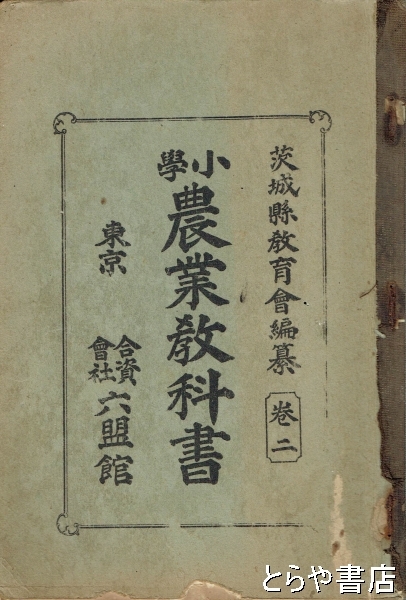 茨城縣教育會編纂 卷二
小學 農業教科書
東京 合資會社 六盟館
とらや書店